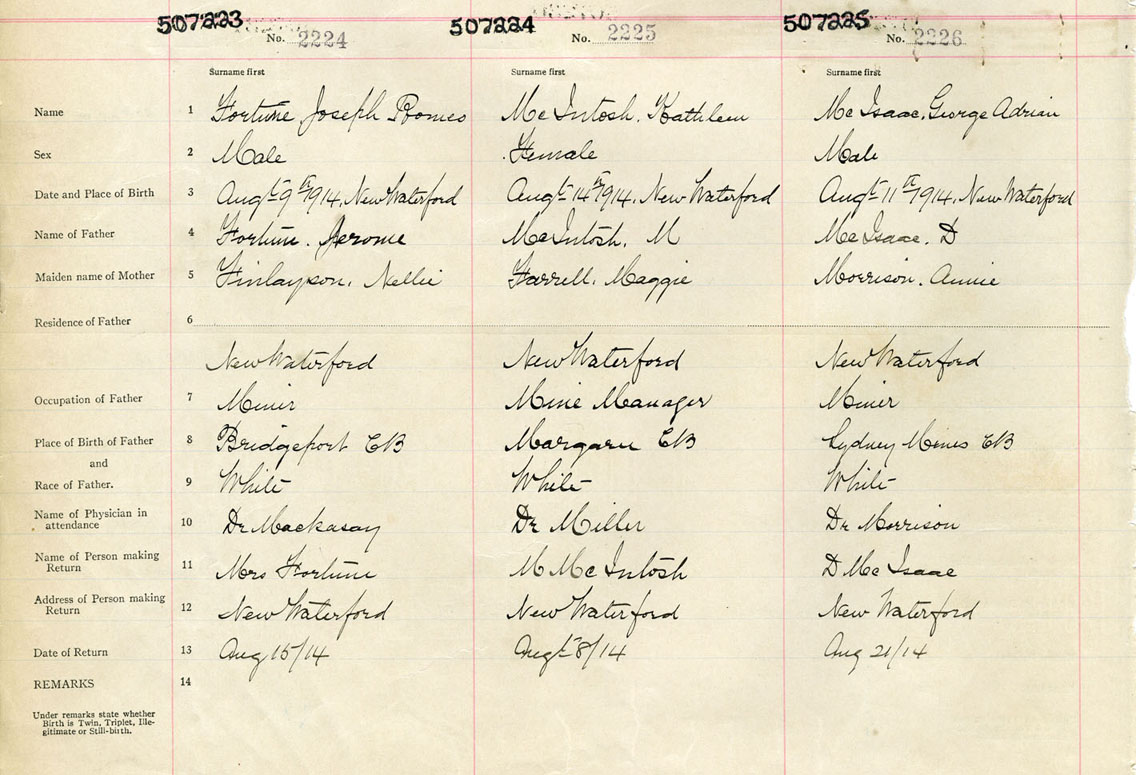 507223 507224 507225
No. 2224 No. 2225 No. 2226
Surname first Surname first Surname first
Name 1 Fortune Joseph Romeo McIntosh, Kathleen McIsaac, George Adrian
Sex 2 Male Female Male
Date and Place of Birth 3 Augt 9th 1914, New Waterford Augt 14th 1914, New Waterford Augt 11th 1914, New Waterford
Name of Father 4 Fortune. Jerome McIntosh, M McIsaac, D
Maiden name of Mother 5 Finlayson, Nellie Farrell, Maggie Morrison, Annie
Residence of Father 6
New Waterford New Waterford New Waterford
Occupation of Father 7 Miner Mine Manager Miner
Place of Birth of Father 8 Bridgeport CB Margaree CB Sydney Mines CB
and
Race of Father. 9 White White White
Name of Physician in
attendance 10 Dr Dr Miller Dr Morrison
Name of Person making
Return 11 Mrs Fortune M McIntosh D McIsaac
Address of Person making
Return 12 New Waterford New Waterford New Waterford
Date of Return 13 Aug 15/14 Augt 8/14 Aug 21/14
REMARKS 14
Under remarks state whether
Birth is Twin, Triplet, Ille-
gitimate or Still-birth.